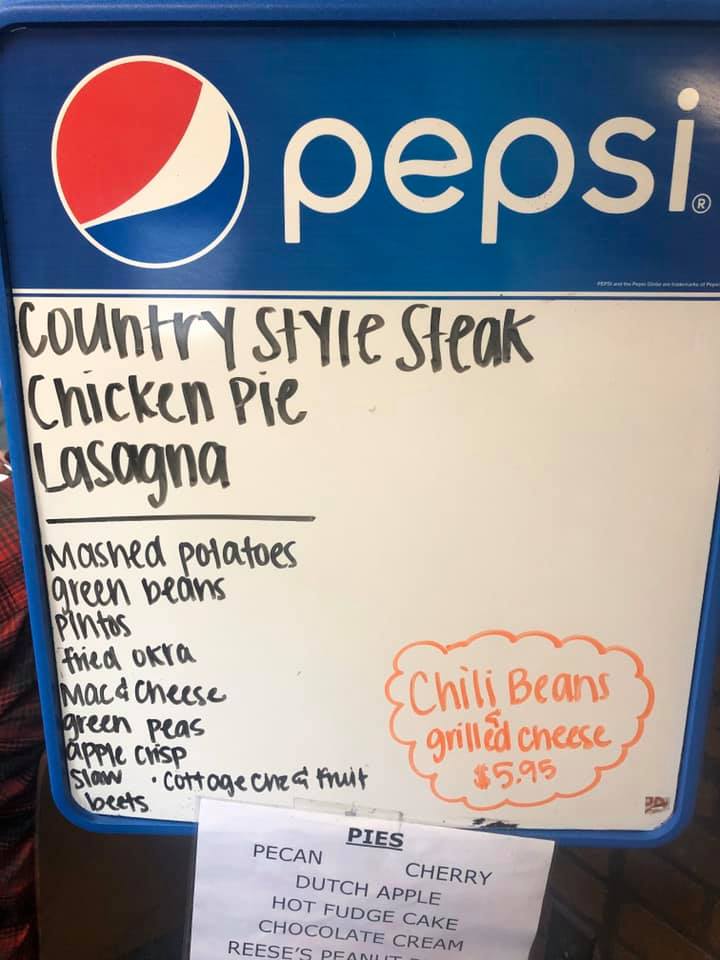 pepsi®
Country Style Steak
Chicken Pie
Lasagna
Mashed potatoes
green beans
pintos
fried okra
Mac & Cheese
green peas
apple crisp
slaw • cottage chz & fruit
beets
Chili Beans
&
grilled cheese
$5.95
PIES
PECAN CHERRY
DUTCH APPLE
HOT FUDGE CAKE
CHOCOLATE CREAM
REESE'S PEANUT